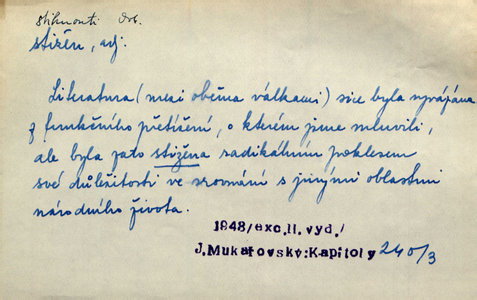 stihnouti dok.
stižen, adj.
Literatura (mezi oběma válkami) sice byla vyvázána
z funkčního přetížení, o kterém jsme mluvili,
ale byla zato stižena radikálním poklesem
své důležitosti ve srovnání s jinými oblastmi
národního života.
1948/exc.II.vyd./
J.Mukařovský:Kapitoly 240/3